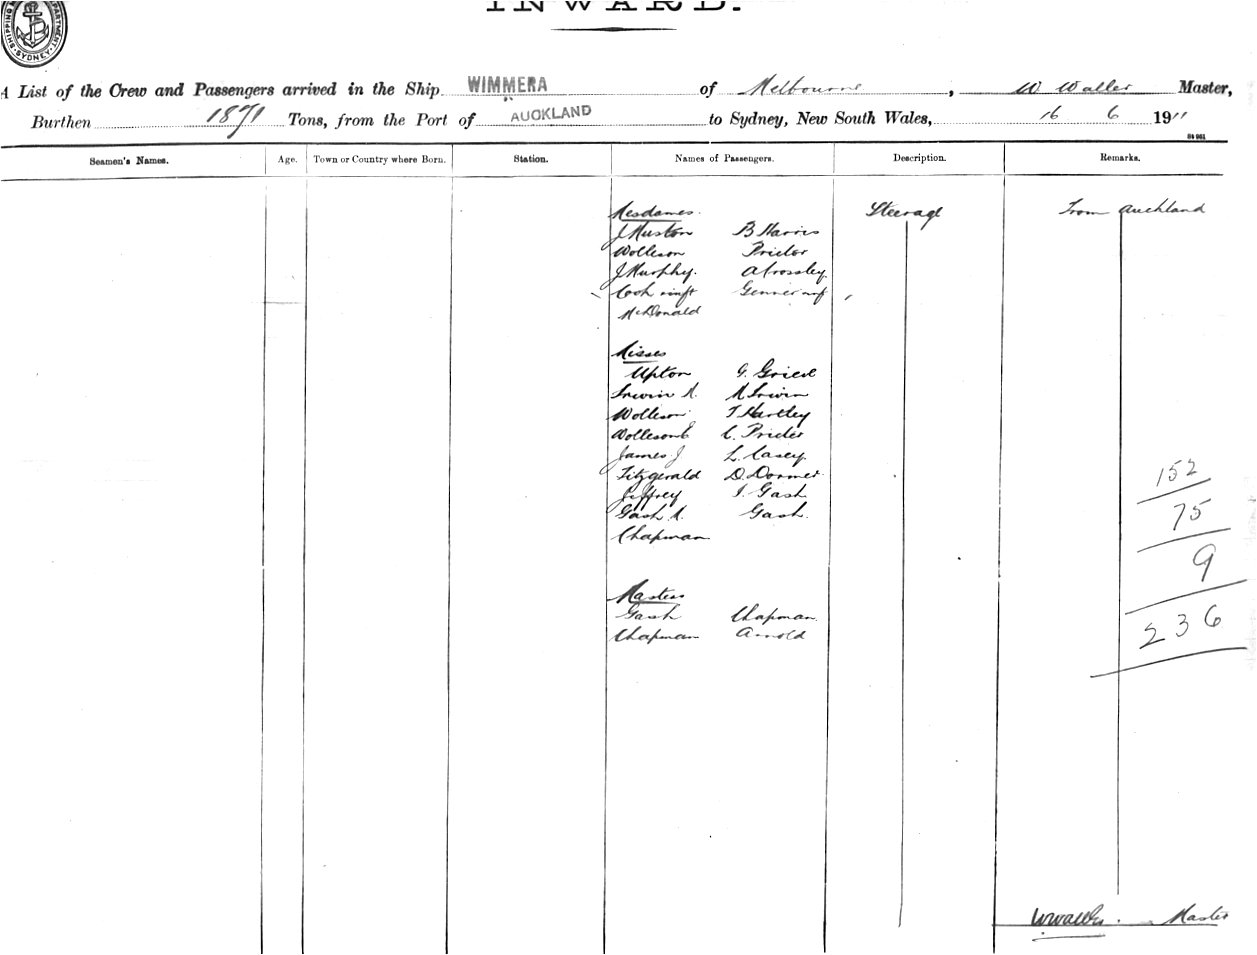 INWARD.
SHIPPING DEPARTMENT SYDNEY
A List of the Crew and Passengers arrived in the Ship WIMMERA of Melbourne, W Waller Master,
Burthen 1871 Tons, from the Port of AUCKLAND to Sydney, New South Wales, 16 6 1911
Seamen's Names. Age. Town or Country where Born. Station. Names of Passengers. Description. Remarks.
Mesdames. Steerage From Auckland
J Huston B Harris
Wolleson Prictor
J Murphy. A Crossley
Cook
McDonald
Misses
Upton G.
Irwin A. M Irwin
Wolleson T Hartley
Wolleson E C. Prictor
James J L. Casey
Fitzgerald D. Dormer
Jeffrey I. Gash
Gash A. Gash.
Chapman
152
75
9
236
Masters
Gash Chapman
Chapman Arnold
W Waller. Master